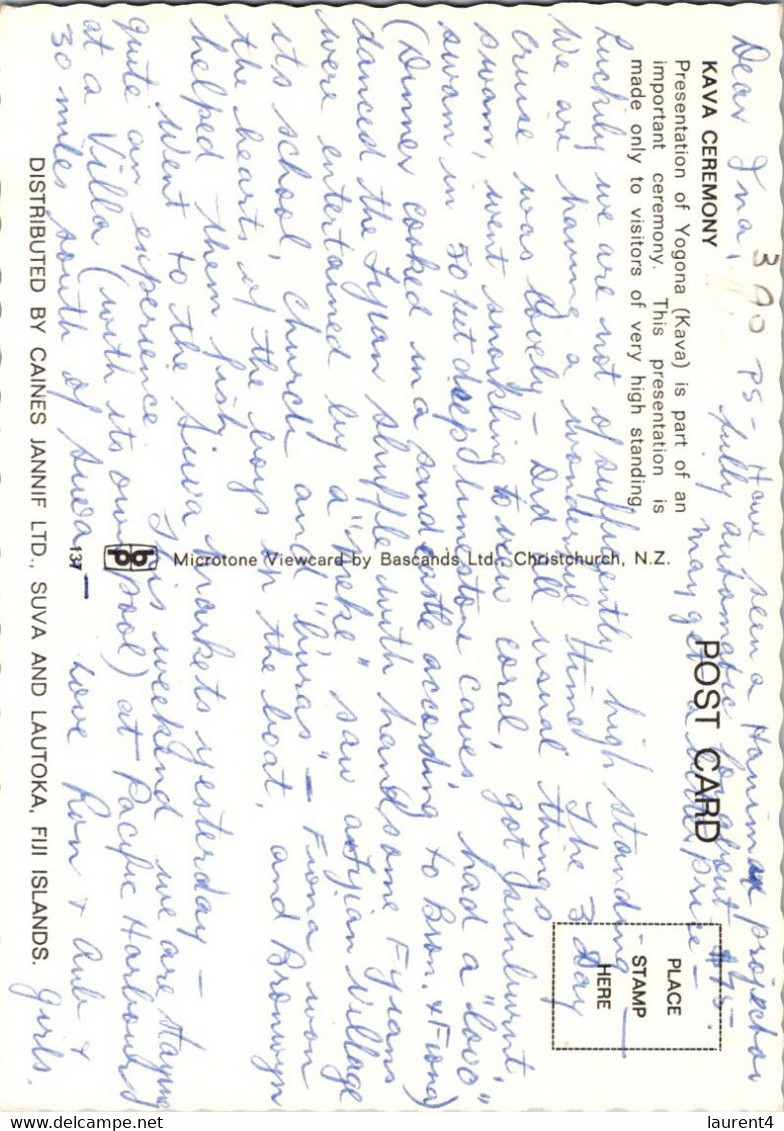 Dear Ina,
390
PS - Have seen a Hanimex projector
fully automatic for about $75 -
may get a better price -
KAVA CEREMONY
Presentation of Yogona (Kava) is part of an
important ceremony. This presentation is
made only to visitors of very high standing.
POST CARD
PLACE
STAMP
HERE
Luckily we are not of sufficiently high standing —
We are having a wonderful time. The 3 Day
cruise was lovely - Did all usual things
swam, went snorkling to view coral, got sunburnt,
swam in 50 feet deep limestone caves, had a "lovo"
(Dinner cooked in a sandcastle according to Bron. & Fiona)
danced the Fyian shuffle with handsome Fyians
were entertained by a "meke" saw a Fyian Village
its school, church and "buras" - Fiona won
the hearts of the boys on the boat, and Bronwyn
helped them fish.
Went to the Suva markets yesterday -
quite an experience. This weekend we are staying
at a Villa (with its own pool) at Pacific Harbour
30 miles south of Suva — Love Ron &
&
girls.
Microtone Viewcard by Bascands Ltd., Christchurch, N.Z.
137
DISTRIBUTED BY CAINES JANNIF LTD., SUVA AND LAUTOKA, FIJI ISLANDS.
laurent4